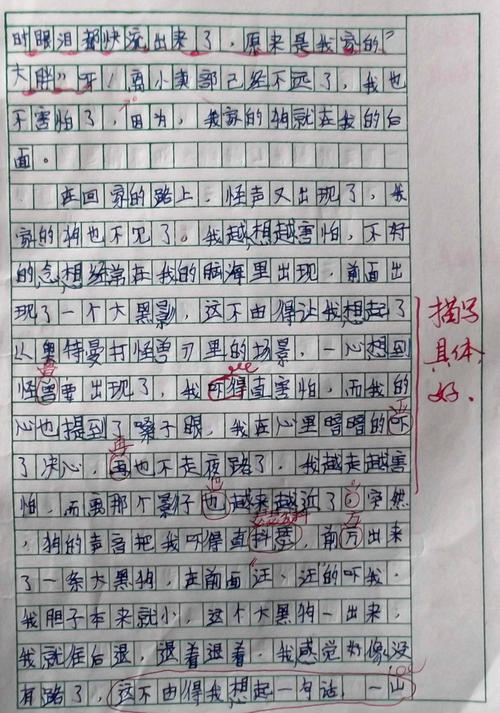 时眼泪都快流出来了，原来是我家的“
大胖”呀！离小卖部已经不远了，我也
不害怕了，因为，我家的狗就在我的后
面。
在回家的路上，怪声又出现了，我
家的狗也不见了。我越想越害怕，不好
的念想经常在我的脑海里出现，前面出
现了一个大黑影，这不由得让我想起了
从奥特曼打怪兽刀里的场景，一心想到
怪兽要出现了，我吓得直害怕，而我的
心也提到了嗓子眼，我在心里暗暗的下
了决心，再也不走夜路了，我越走越害
怕，而离那个影子也越来越近了。突然
，狗的声音把我吓得直抖，前方出来
了一条大黑狗，在前面汪、汪的吓我，
我胆子本来就小，这个大黑狗一出来，
我就往后退，退着退着，我感觉好像没
有路了，这不由得我想起一句话，一山
描写
具体，
好．